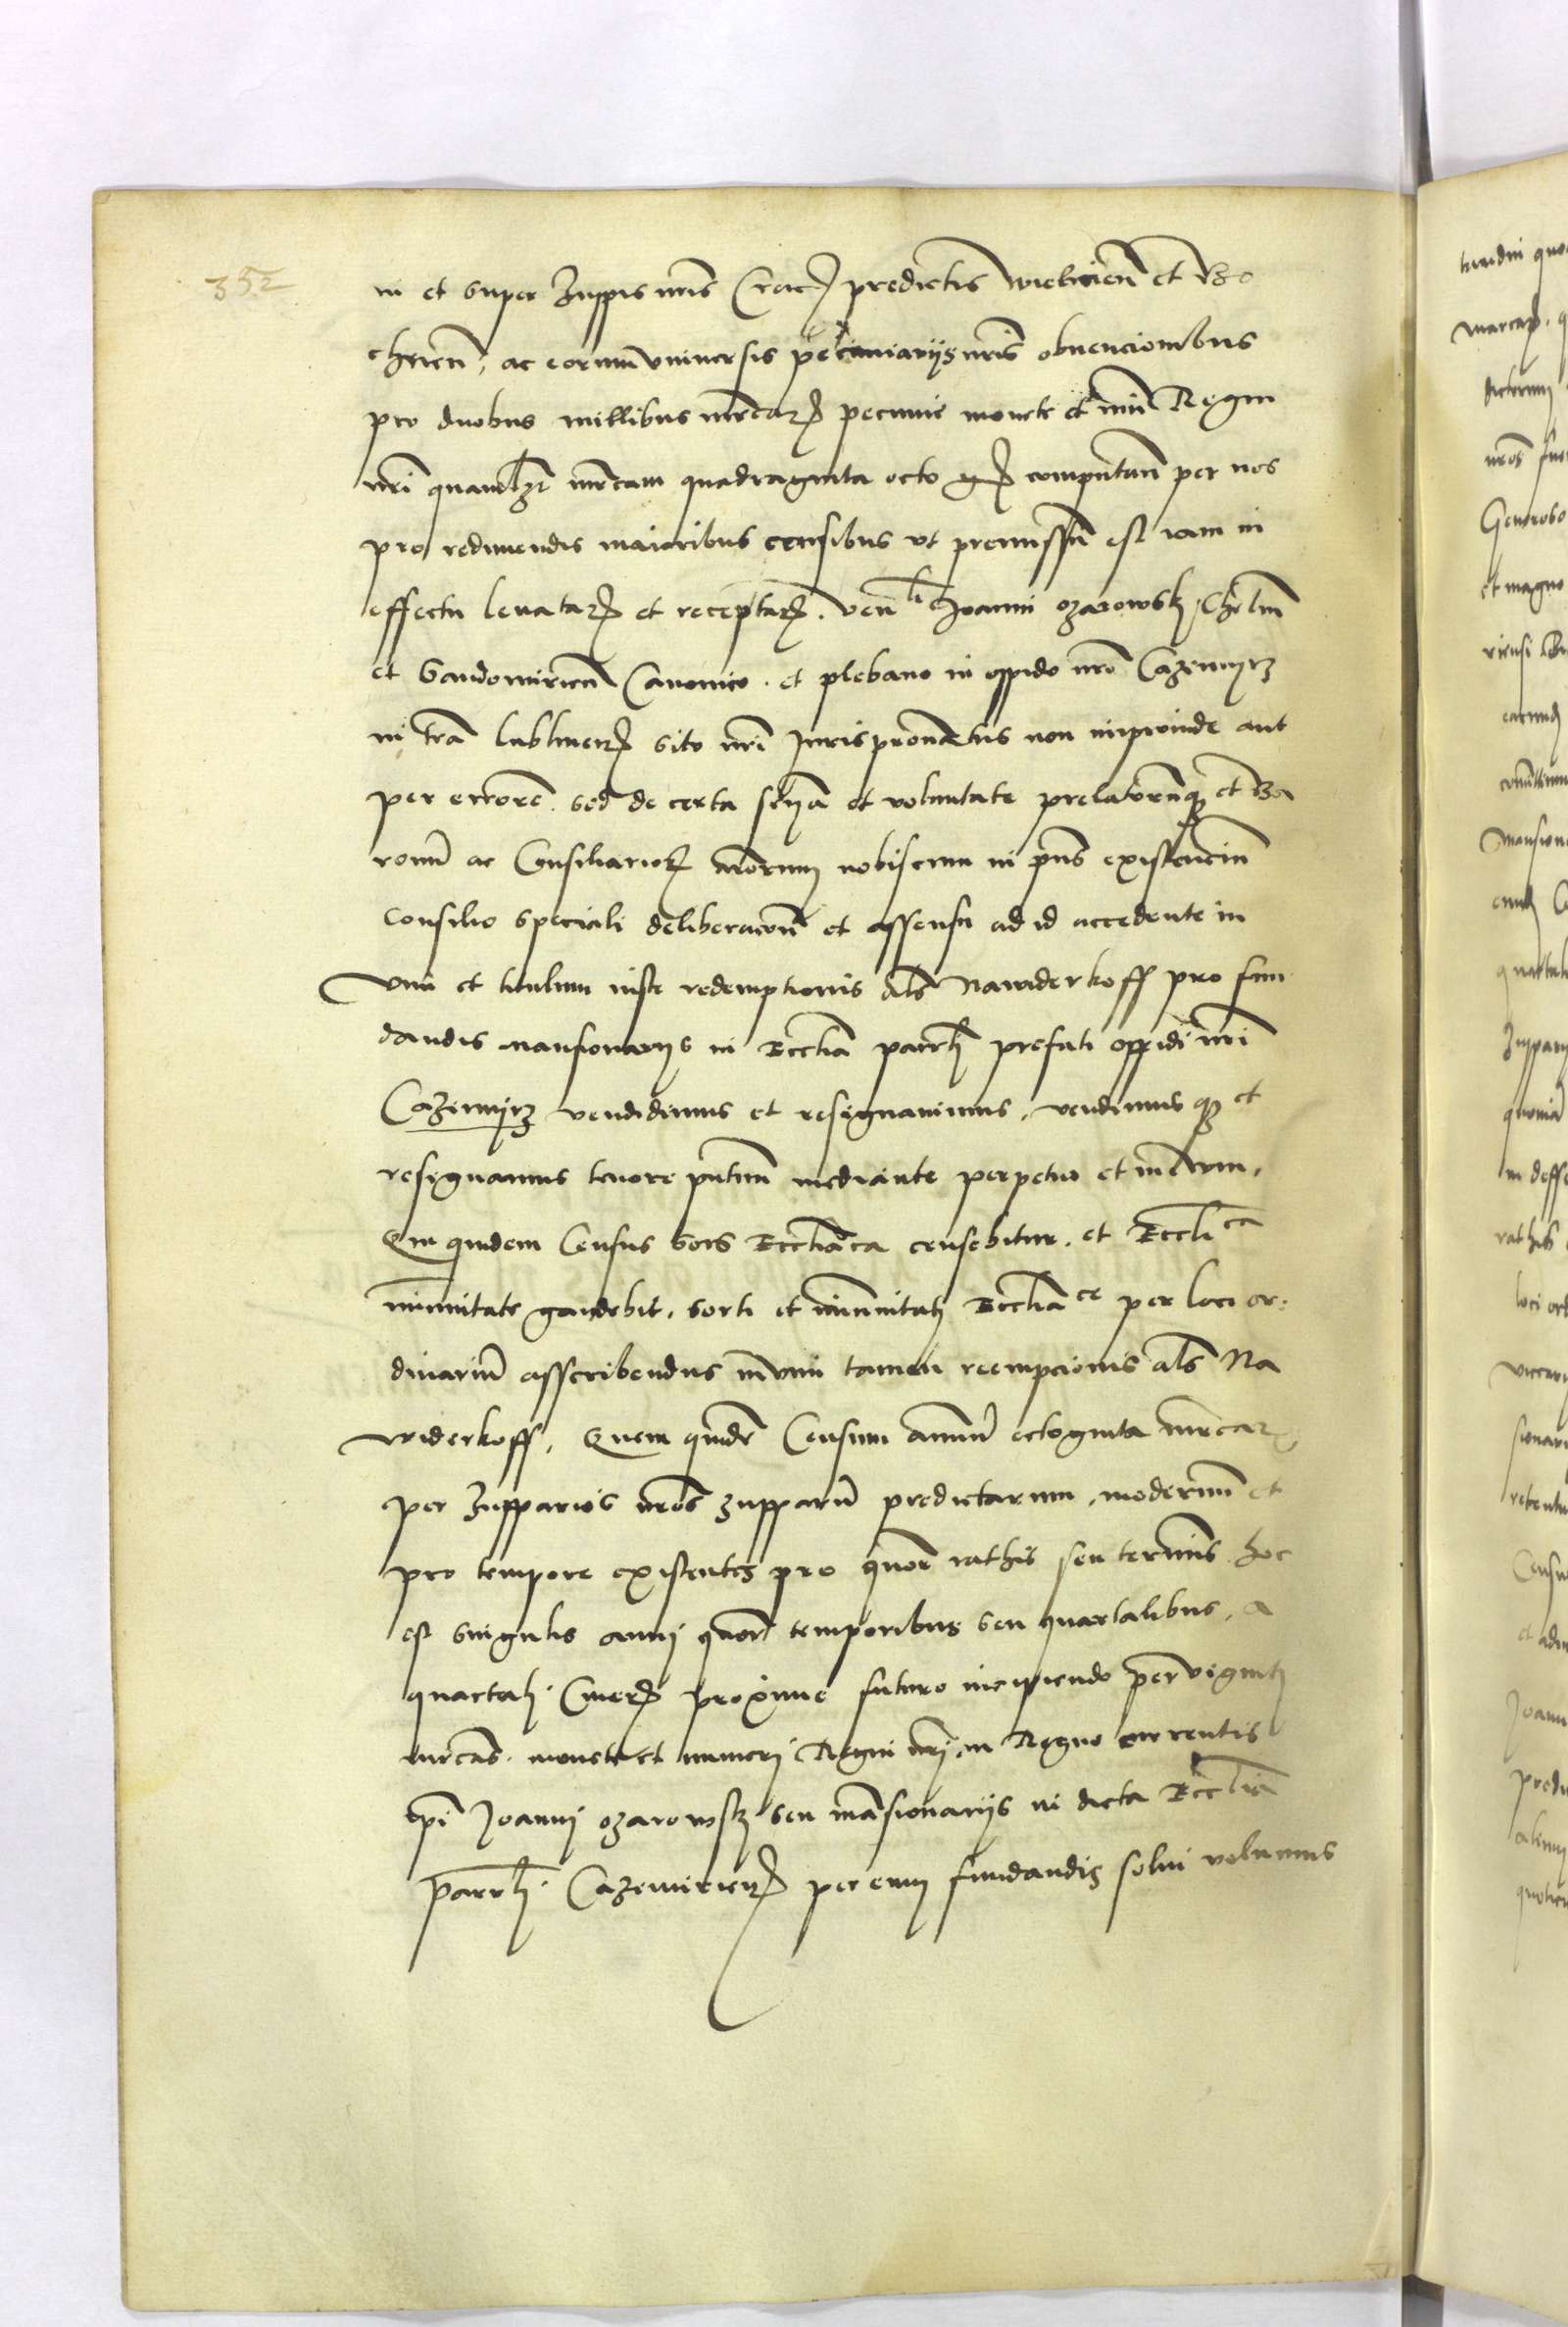 352
in et super zuppis nris Crac predictis wielicien et Bo
chnen, ac eorum universis pecuniariis nris obuencionibus
pro duobus millibus mrcar pecunie monete et nui Regni
nri quamlzt mrcam quadraginta octo gr computan per nos
pro redimendis maioribus censibus ut premissu est iam in
effectu levatar et receptar. ven li Joanni ozarowski, Chelm
et Sandomirien Canonico. et plebano in oppido nro Cazemyrz
in tra lublinen sito nri Jurispronatus non improvide aut
per errore. sed de certa scija et voluntate prelatorumq et Ba
ronu ac Consiliarior nrorum nobiscum in pns existenciu
Consilio speciali deliberacon et assensu ad id accedente in
vim et titulum iuste redemptionis als Nawiderkoff pro fun
dandis mansionarijs in Ecclia parrh prefati oppidi nri
Cazemyrz vendidimus et resignavimus, vendimus q et
resignamus tenore pntium mediante perpetuo et in evum.
Qui quidem Census sors Ecclia ca censebitur. et Eccli ca
imunitate gaudebit, sorti et imunitati Ecclia ce per loci or:
dinariu asscribendus in vim tamen reempcionis als Na
widerkoff. Quem quide Censum annuu octoginta mrcar
per zupparios nros zupparu predictarum, modernu et
pro tempore existentes pro quor rathis seu terminis hoc
est singulis anni quor temporibus seu quartalibus, a
quartali Cineru proxime futuro incipiendo per viginti
mrcas monete et numeri Regni nri in Regno currentis
ipi Joanni ozarowski seu mansionariis in dicta Ecclia
parrh. Cazemirien per eum fundandis solvi volumus